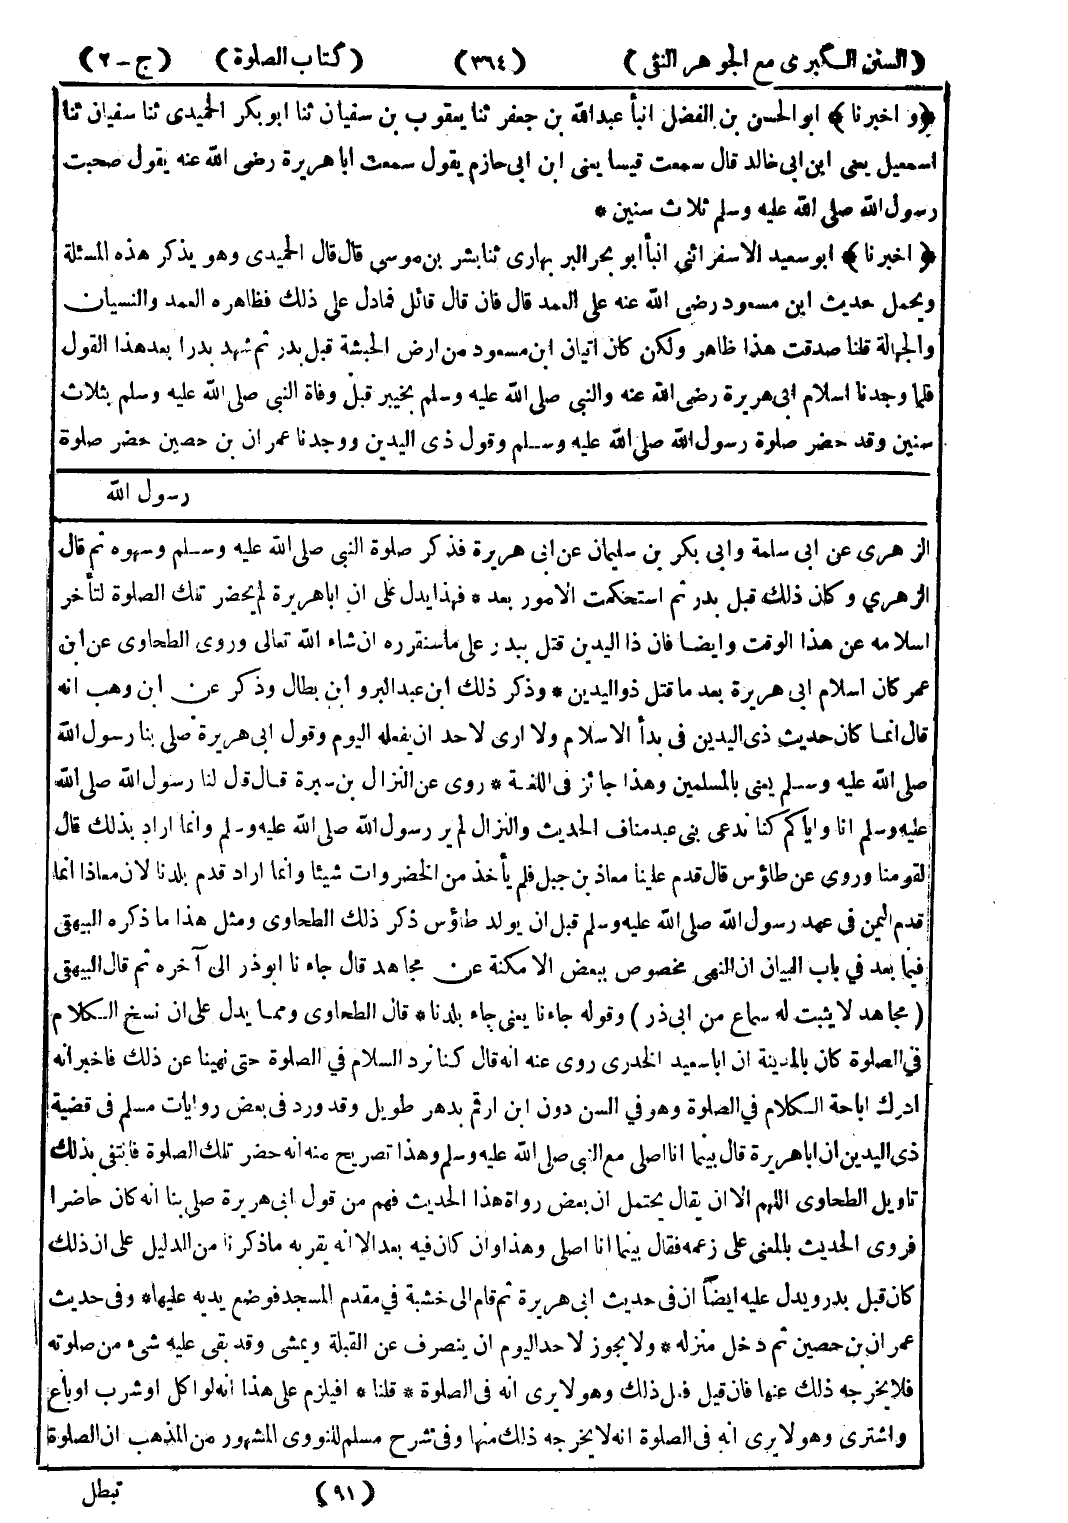 (السنن الكبرى مع الجوهر النقى) (٣٦٤) (كتاب الصلوة) (ج-٢)
﴿و اخبرنا﴾ ابوالحسن بن الفضل انبأ عبدالله بن جعفر ثنا يعقوب بن سفيان ثنا ابو بكر الحميدى ثنا سفيان ثنا
اسمعيل يعنى ابن ابى خالد قال سمعت قيسا يعنى ابن ابى حازم يقول سمعت ابا هريرة رضى الله عنه يقول صحبت
رسول الله صلى الله عليه وسلم ثلاث سنين *
﴿ اخبرنا﴾ ابو سعيد الاسفرائنى انبأ ابو بحر البربهارى ثنا بشر بن موسى قال قال الحميدى وهو يذكر هذه المسئلة
ويحمل حديث ابن مسعود رضى الله عنه على العمد قال فان قال قائل فمادل على ذلك فظاهره العمد والنسيان
والجهالة قلنا صدقت هذا ظاهر ولكن كان اتيان ابن مسعود من ارض الحبشة قبل بدر ثم شهد بدرا بعد هذا القول
فلما وجدنا اسلام ابى هريرة رضى الله عنه والنبى صلى الله عليه وسلم بخيبر قبل وفاة النبى صلى الله عليه وسلم بثلاث
سنين وقد حضر صلوة رسول الله صلى الله عليه وسلم وقول ذى اليدين ووجدنا عمران بن حصين حضر صلوة
رسول الله
الزهرى عن ابى سلمة وابى بكر بن سليمان عن ابى هريرة فذكر صلوة النبى صلى الله عليه وسلم وسهوه ثم قال
الزهري وكان ذلك قبل بدر ثم استحكمت الامور بعد * فهذا يدل على ان اباهريرة لم يحضر تلك الصلوة لتأخر
اسلامه عن هذا الوقت وايضا فان ذا اليدين قتل ببدر على ماسنقرره ان شاء الله تعالى وروى الطحاوى عن ابن
عمر كان اسلام ابى هريرة بعد ما قتل ذو اليدين * وذكر ذلك ابن عبد البر و ابن بطال وذكر عن ابن وهب انه
قال انما كان حديث ذى اليدين فى بدأ الاسلام ولا ارى لاحد ان يفعله اليوم وقول ابى هريرة صلى بنا رسول الله
صلى الله عليه وسلم يعنى بالمسلمين وهذا جائز فى اللغة * روى عن النزال بن سبرة قال قال لنا رسول الله صلى الله
عليه وسلم انا واياكم كنا ندعى بنى عبد مناف الحديث والنزال لم ير رسول الله صلى الله عليه وسلم وانما اراد بذلك قال
لقومنا وروى عن طاؤس قال قدم علينا معاذ بن جبل فلم يأخذ من الخضروات شيئا وانما اراد قدم بلدنا لان معاذا انما
قدم اليمن فى عهد رسول الله صلى الله عليه وسلم قبل ان يولد طاؤس ذكر ذلك الطحاوى ومثل هذا ما ذكره البيهقى
فيما بعد في باب البيان ان النهى مخصوص ببعض الامكنة عن مجاهد قال جاءنا ابوذر الى آخره ثم قال البيهقى
(مجاهد لا يثبت له سماع من ابى ذر) وقوله جاءنا يعنى جاء بلدنا * قال الطحاوى ومما يدل على ان نسخ الكلام
في الصلوة كان بالمدينة ان اباسعيد الخدرى روى عنه انه قال كنا نرد السلام في الصلوة حتى نهينا عن ذلك فاخبر انه
ادرك اباحة الكلام في الصلوة وهو في السن دون ابن ارقم بدهر طويل وقد ورد فى بعض روايات مسلم فى قضية
ذى اليدين ان اباهريرة قال بينما انا اصلى مع النبى صلى الله عليه وسلم وهذا تصريح منه انه حضر تلك الصلوة فانتفى بذلك
تاويل الطحاوى اللهم الا ان يقال يحتمل ان بعض رواة هذا الحديث فهم من قول ابى هريرة صلى بنا انه كان حاضرا
فروى الحديث بالمعنى على زعمه فقال بينما انا اصلى وهذا وان كان فيه بعد الا انه يقربه ماذكرنا من الدليل على ان ذلك
كان قبل بدر ويدل عليه ايضاً ان فى حديث ابى هريرة ثم قام الى خشبة في مقدم المسجد فوضع يديه عليها * وفى حديث
عمران بن حصين ثم دخل منزله * ولا يجوز لاحد اليوم ان ينصرف عن القبلة ويمشى وقد بقى عليه شىء من صلوته
فلا يخرجه ذلك عنها فان قيل فعل ذلك وهو لا يرى انه فى الصلوة * قلنا * افيلزم على هذا انه لو اكل او شرب او باع
واشترى وهو لا يرى انه فى الصلوة انه لا يخرجه ذلك منها وفى شرح مسلم للنووى المشهور من المذهب ان الصلوة
(٩١) تبطل